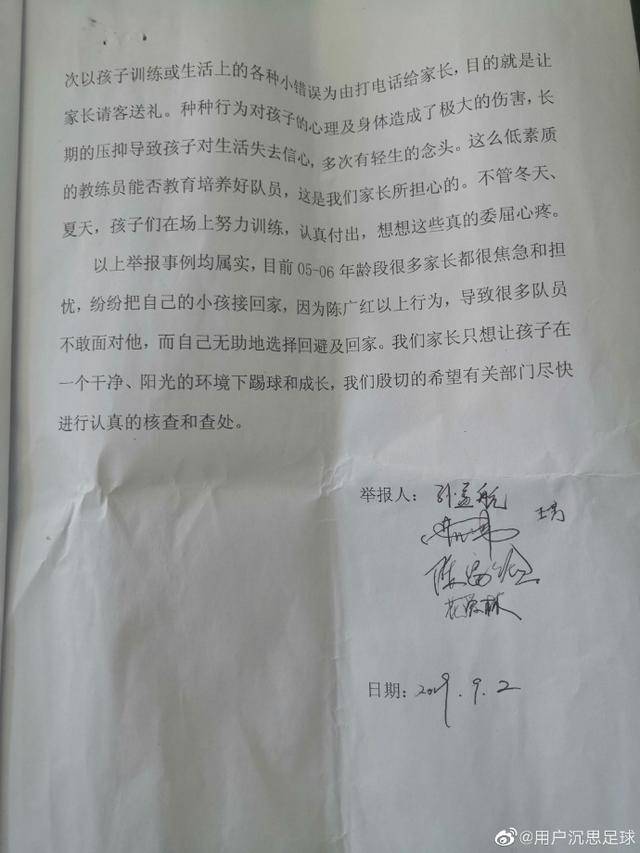 次以孩子训练或生活上的各种小错误为由打电话给家长，目的就是让
家长请客送礼。种种行为对孩子的心理及身体造成了极大的伤害，长
期的压抑导致孩子对生活失去信心，多次有轻生的念头。这么低素质
的教练员能否教育培养好队员，这是我们家长所担心的。不管冬天、
夏天，孩子们在场上努力训练，认真付出，想想这些真的委屈心疼。
以上举报事例均属实，目前 05-06 年龄段很多家长都很焦急和担
忧，纷纷把自己的小孩接回家，因为陈广红以上行为，导致很多队员
不敢面对他，而自己无助地选择回避及回家。我们家长只想让孩子在
一个干净、阳光的环境下踢球和成长，我们殷切的希望有关部门尽快
进行认真的核查和查处。
举报人：
日期：2019.9.2
@用户沉思足球